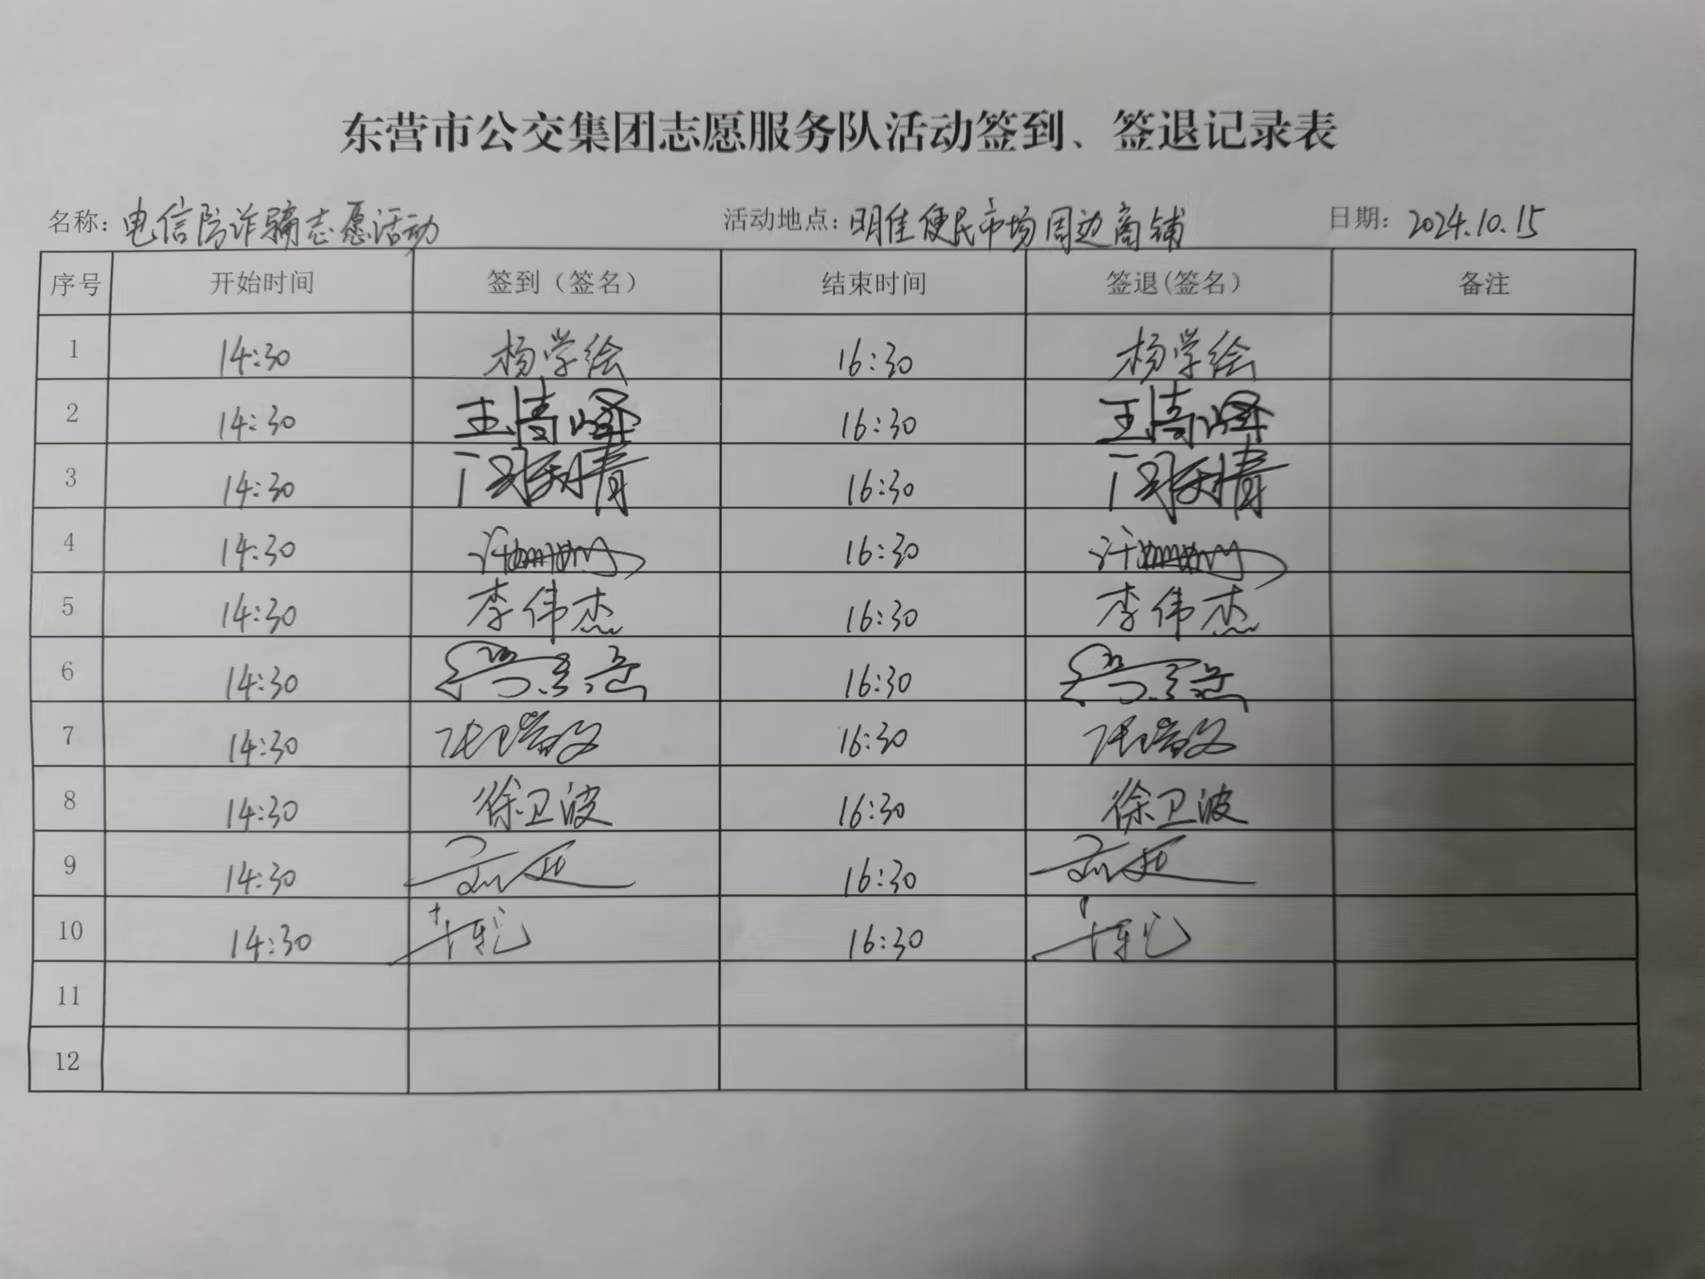 东营市公交集团志愿服务队活动签到、签退记录表
名称: 电信防诈骗志愿活动 活动地点: 明佳便民市场周边商铺 日期: 2024.10.15
序号 开始时间 签到（签名） 结束时间 签退(签名） 备注
1 14:30 杨学绘 16:30 杨学绘
2 14:30 16:30
3 14:30 16:30
4 14:30 16:30
5 14:30 李伟杰 16:30 李伟杰
6 14:30 16:30
7 14:30 16:30
8 14:30 徐卫波 16:30 徐卫波
9 14:30 16:30
10 14:30 16:30
11
12